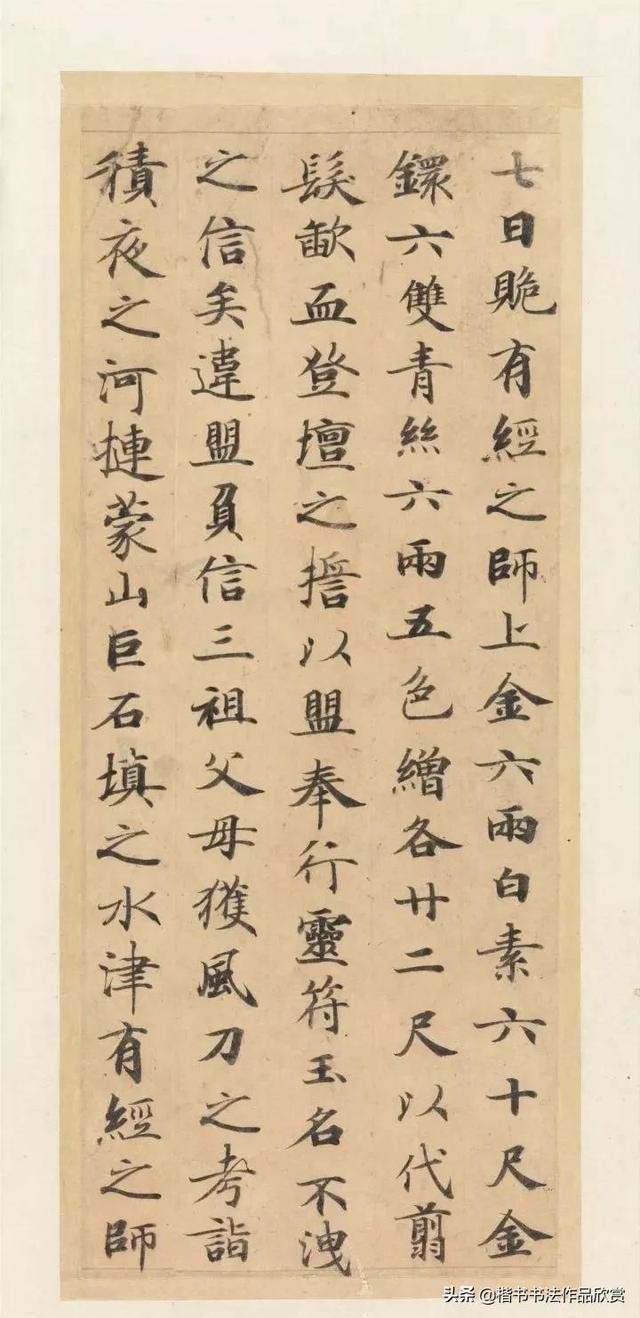 七日有經之師上金六兩白素六十尺金
鐶六雙青絲六兩五色繒各廿二尺以代翦
髮歃血登壇之誓以盟奉行靈符玉名不洩
之信矣違盟負信三祖父母獲風刀之考詣
積夜之河摙蒙山巨石填之水津有經之師
头条 @楷书书法作品欣赏